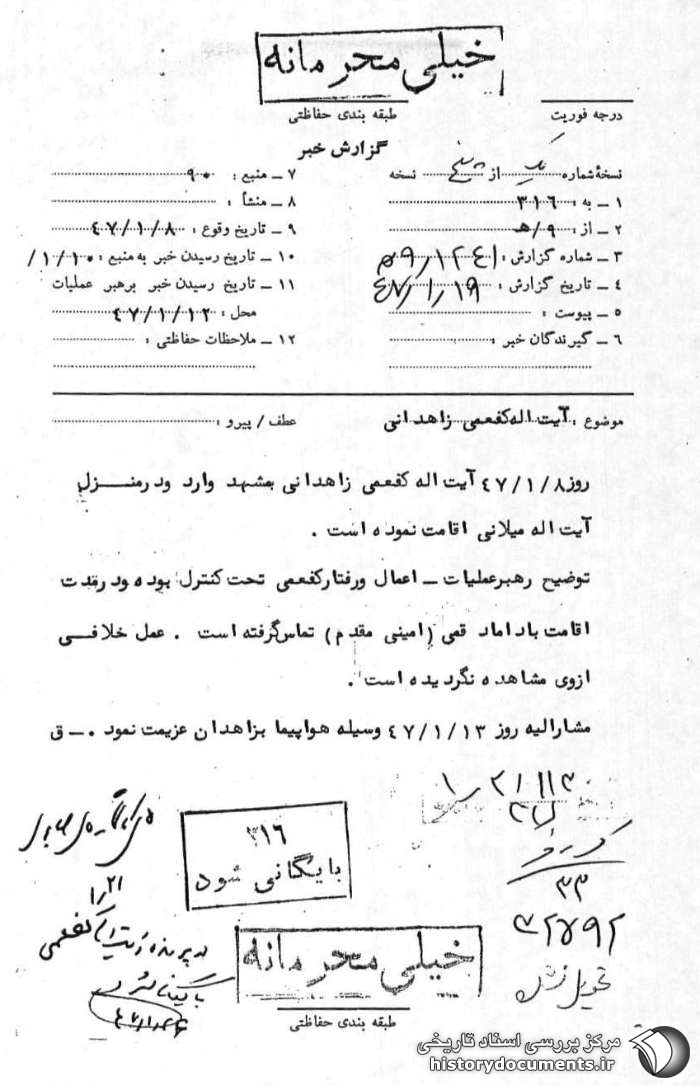 خیلی محرمانه
طبقه بندی حفاظتی
درجه فوریت
گزارش خبر
نسخهٔ شماره یک از پنج نسخه
۱ ــ به : ۳۱۶
۲ ــ از : ۹/هـ
۳ ــ شماره گزارش : ۹/۱۲۴۱م
۴ ــ تاریخ گزارش : ۴۷/۱/۱۹
۵ ــ پیوست :
۶ ــ گیرندگان خبر :
۷ ــ منبع : ۹۰
۸ ــ منشأ :
۹ ــ تاریخ وقوع : ۴۷/۱/۸
۱۰ ــ تاریخ رسیدن خبر به منبع : ۱/۱۰/
۱۱ ــ تاریخ رسیدن خبر برهبر عملیات
محل : ۴۷/۱/۱۲
۱۲ ــ ملاحظات حفاظتی :
موضوع : آیت اله کفعمی زاهدانی
عطف / پیرو :
روز ۴۷/۱/۸ آیت اله کفعمی زاهدانی بمشهد وارد ودرمنزل
آیت اله میلانی اقامت نموده است .
توضیح رهبرعملیات ــ اعمال ورفتارکفعمی تحت کنترل بوده ودرمدت
اقامت باداماد قمی (امینی مقدم) تماس گرفته است . عمل خلافی
ازوی مشاهده نگردیده است .
مشارالیه روز ۴۷/۱/۱۳ وسیله هواپیما بزاهدان عزیمت نمود . ــ ق
۳۱۶
بایگانی شود
۱/۲۱
در پرونده آیت اله کفعمی
بایگانی شود
۳۳
خیلی محرمانه
طبقه بندی حفاظتی
مرکز بررسی اسناد تاریخی
historydocuments.ir